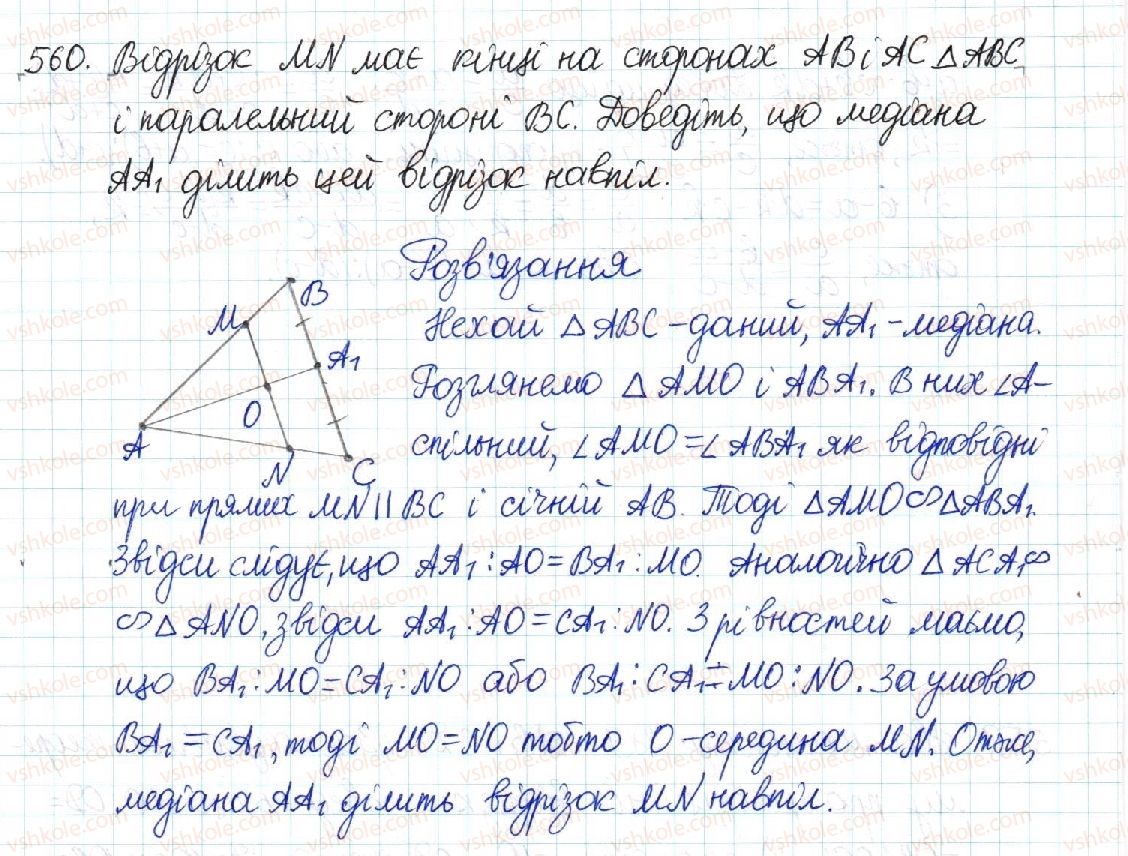 560. Відрізок MN має кінці на сторонах AB і AC △ABC
і паралельний стороні BC. Доведіть, що медіана
AA₁ ділить цей відрізок навпіл.
Розв'язання
B
M
A₁
O
A
N
C
Нехай △ABC – даний, AA₁ – медіана.
Розглянемо △AMO і ABA₁. В них ∠A –
спільний, ∠AMO = ∠ABA₁ як відповідні
при прямих MN || BC і січній AB. Тоді △AMO ∽ △ABA₁.
Звідси слідує, що AA₁ : AO = BA₁ : MO. Аналогічно △ACA₁ ∽
∽ △ANO, звідси AA₁ : AO = CA₁ : NO. З рівностей маємо,
що BA₁ : MO = CA₁ : NO або BA₁ : CA₁ = MO : NO. За умовою
BA₁ = CA₁, тоді MO = NO тобто O – середина MN. Отже,
медіана AA₁ ділить відрізок MN навпіл.
vshkole.com